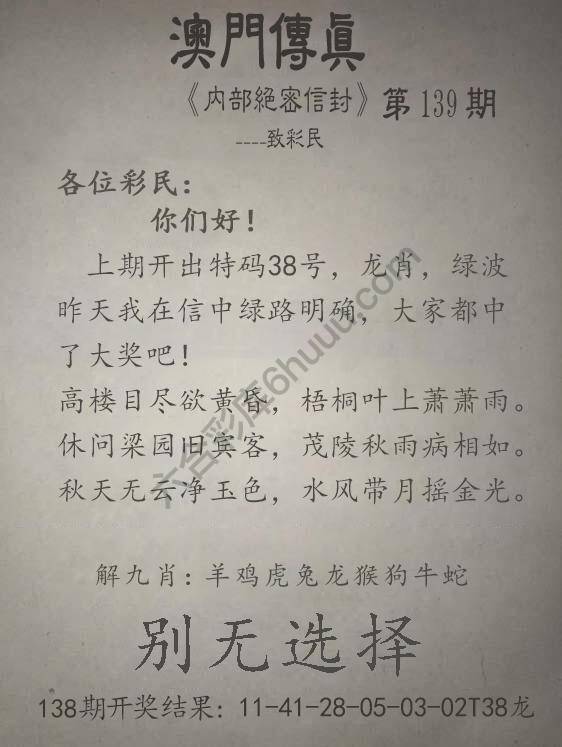 澳門傳眞
《内部絕密信封》第139期
----致彩民
各位彩民：
你们好！
上期开出特码38号，龙肖，绿波
昨天我在信中绿路明确，大家都中
了大奖吧！
高楼目尽欲黄昏，梧桐叶上萧萧雨。
休问梁园旧宾客，茂陵秋雨病相如。
秋天无云净玉色，水风带月摇金光。
解九肖：羊鸡虎兔龙猴狗牛蛇
别无选择
138期开奖结果：11-41-28-05-03-02T38龙
六合彩库6huuu.com